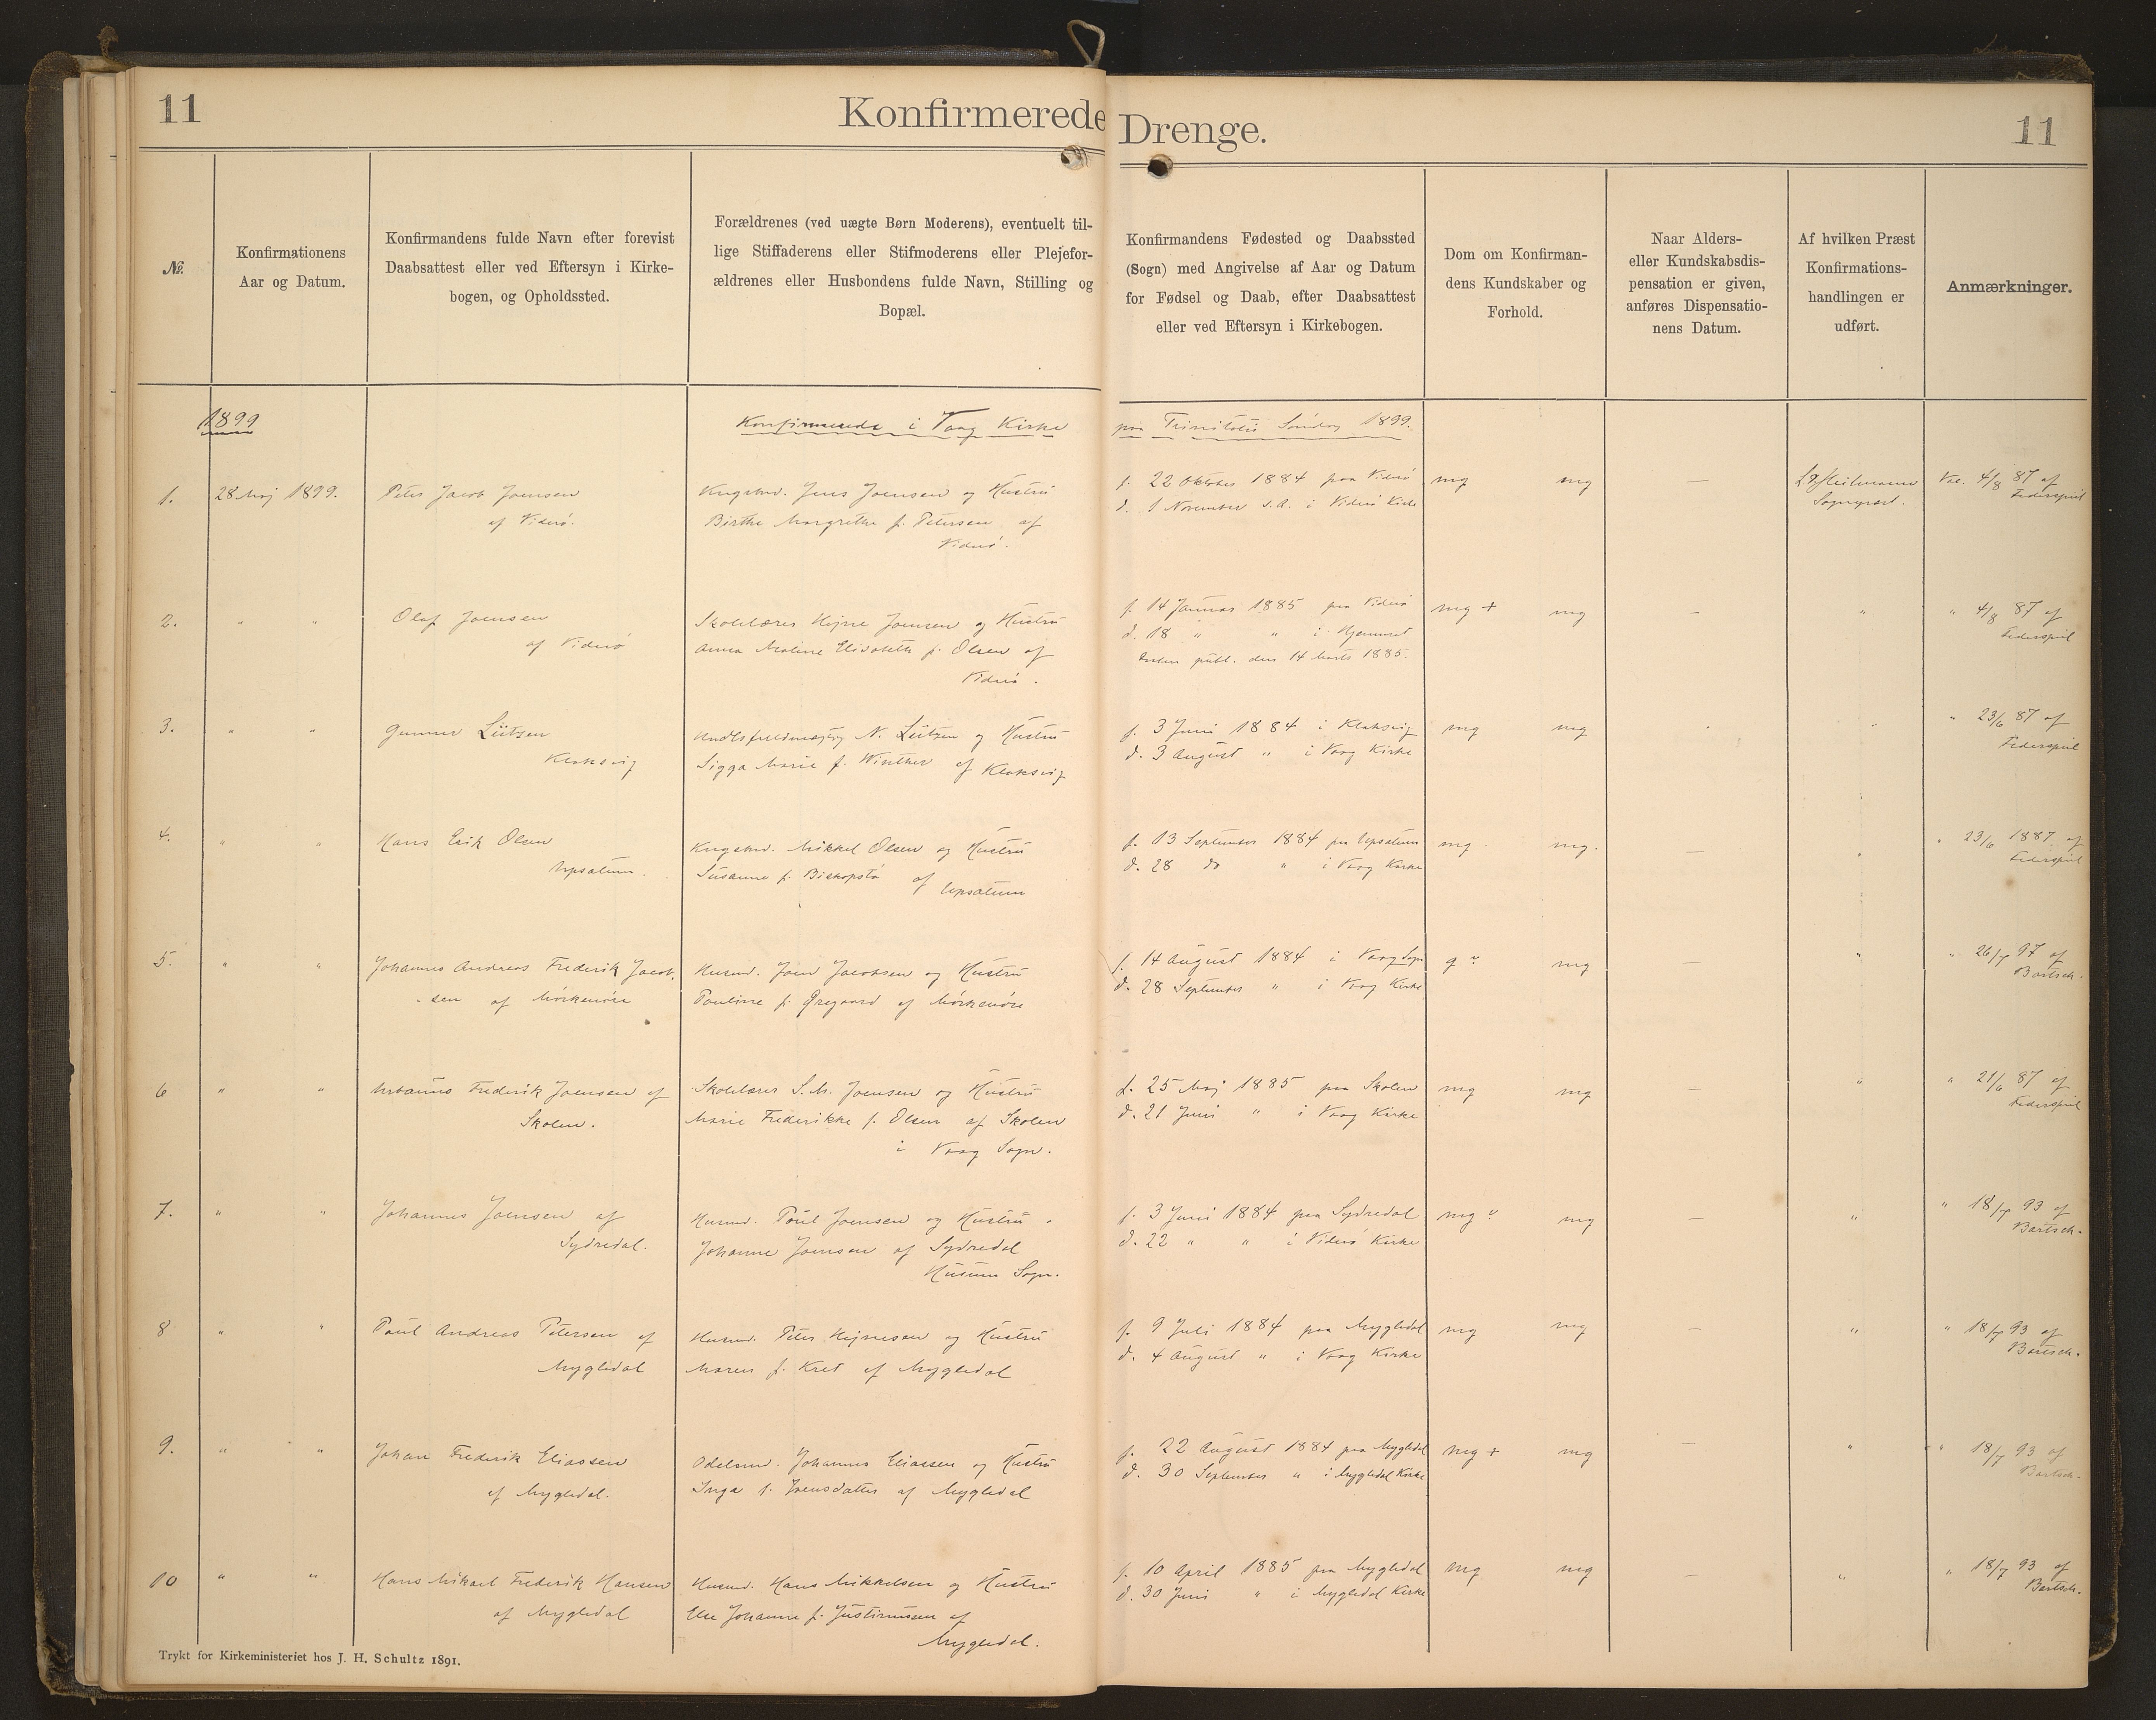 11
Konfirmerede Drenge.
11
№.
Konfirmationens
Aar og Datum.
Konfirmandens fulde Navn efter forevist
Daabsattest eller ved Eftersyn i Kirke-
bogen, og Opholdssted.
Forældrenes (ved uægte Børn Moderens), eventuelt til-
lige Stiffaderens eller Stifmoderens eller Plejefor-
ældrenes eller Husbondens fulde Navn, Stilling og
Bopæl.
Konfirmandens Fødested og Daabssted
(Sogn) med Angivelse af Aar og Datum
for Fødsel og Daab, efter Daabsattest
eller ved Eftersyn i Kirkebogen.
Dom om Konfirman-
dens Kundskaber og
Forhold.
Naar Alders-
eller Kundskabsdis-
pensation er given,
anføres Dispensatio-
nens Datum.
Af hvilken Præst
Konfirmations-
handlingen er
udført.
Anmærkninger.
1899
Konfirmerede i Vaag Kirke paa Trinitatis Søndag 1899.
1.
28 Maj 1899.
Peter Jacob Joensen
af Viderø.
Kngsbmd. Jens Joensen og Hustru
Birthe Margrethe f. Petersen af
Viderø.
f. 22 Oktober 1884 paa Viderø
d. 1 November s.A. i Viderø Kirke
mg mg
—
Heilmann
Sognepræst.
Vac. 4/8 87 af
Federspiel
2.
" "
Olaf Joensen
af Viderø
Skolelærer Hejne Joensen og Hustru
Anna Malene Elisabeth f. Olsen af
Viderø.
f. 14 Januar 1885 paa Viderø
d. 18 " " i Hjemmet
publ. den 14 Marts 1885.
mg + mg
—
"
" 4/8 87 af
Federspiel
3.
" "
Gunnar Lützen
Klaksvig
N. Lützen og Hustru
Sigga Marie f. Winther af Klaksvig
f. 3 Juni 1884 i Klaksvig
d. 3 August " i Vaag Kirke
mg mg
"
" 23/6 87 af
Federspiel
4.
" "
Hans Erik Olsen
Upsalum.
Kngsbmd. Mikkel Olsen og Hustru
Susanne f. Biskopstø af Upsalum
f. 13 September 1884 paa Upsalum
d. 28 do " i Vaag Kirke
mg mg.
—
"
" 23/6 1887 af
Federspiel
5.
" "
Johannes Andreas Frederik Jacob-
-sen af Mørkenøre
Husmd. Joen Jacobsen og Hustru
Pauline f. Øregaard af Mørkenøre
f. 14 August 1884 i Vaag Sogn
d. 28 September " i Vaag Kirke
g mg
—
"
" 26/7 97 af
Bartsch.
6
" "
Urbanus Frederik Joensen af
Skolen.
Skolelærer S. M. Joensen og Hustru
Marie Frederikke f. Olsen af Skolen
i Vaag Sogn.
f. 25 Maj 1885 paa Skolen
d. 21 Juni " i Vaag Kirke
mg mg
—
"
" 21/6 87 af
Federspiel
7.
" "
Johannes Joensen af
Sydredal.
Husmd. Poul Joensen og Hustru
Johanne Joensen af Sydredal
Husum Sogn.
f. 3 Juni 1884 paa Sydredal
d. 22 " " i Viderø Kirke
mg mg
—
"
" 18/7 93 af
Bartsch.
8
" "
Poul Andreas Petersen af
Mygledal
Husmd. Peter Hejnesen og Hustru
Maren f. Kret af Mygledal
f. 9 Juli 1884 paa Mygledal
d. 4 August " i Vaag Kirke
mg mg
—
"
" 18/7 93 af
Bartsch.
9.
" "
Johan Frederik Eliassen
af Mygledal.
Odelsmd. Johannes Eliassen og Hustru
Inga f. Joensdatter af Mygledal
f. 22 August 1884 paa Mygledal
d. 30 September " i Mygledal Kirke
mg + mg
—
"
" 18/7 93 af
Bartsch.
10
" "
Hans Mikael Frederik Hansen
af Mygledal
Husmd. Hans Mikkelsen og Hustru
Else Johanne f. Justinussen af
Mygledal.
f. 10 April 1885 paa Mygledal
d. 30 Juni " i Mygledal Kirke
mg mg
—
"
" 18/7 93 af
Bartsch.
Trykt for Kirkeministeriet hos J. H. Schultz 1891.